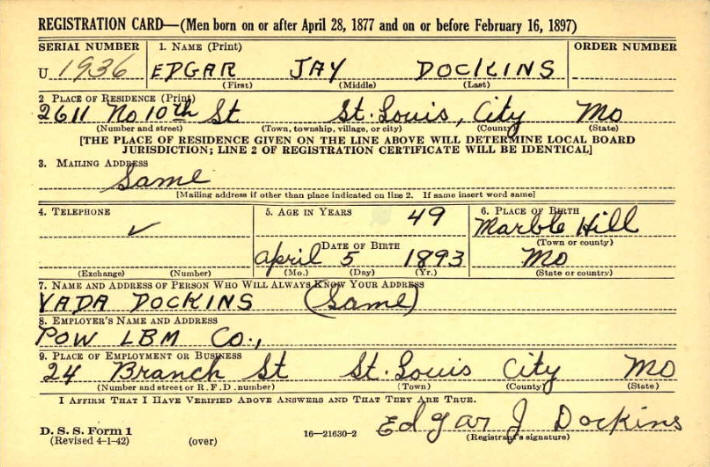 REGISTRATION CARD—(Men born on or after April 28, 1877 and on or before February 16, 1897)
SERIAL NUMBER 1. NAME (Print) ORDER NUMBER
U 1936 EDGAR JAY DOCKINS
(First) (Middle) (Last)
2 PLACE OF RESIDENCE (Print)
2611 No 10th St St. Louis, City Mo
(Number and street) (Town, township, village, or city) (County) (State)
[THE PLACE OF RESIDENCE GIVEN ON THE LINE ABOVE WILL DETERMINE LOCAL BOARD
JURISDICTION; LINE 2 OF REGISTRATION CERTIFICATE WILL BE IDENTICAL]
3. MAILING ADDRESS
Same
[Mailing address if other than place indicated on line 2. If same insert word same]
4. TELEPHONE 5. AGE IN YEARS 49 6. PLACE OF BIRTH
✓ Marble Hill
DATE OF BIRTH (Town or county)
April 5 1893 Mo
(Exchange) (Number) (Mo.) (Day) (Yr.) (State or country)
7. NAME AND ADDRESS OF PERSON WHO WILL ALWAYS KNOW YOUR ADDRESS
VADA DOCKINS (Same)
8. EMPLOYER'S NAME AND ADDRESS
POW LBM Co.,
9. PLACE OF EMPLOYMENT OR BUSINESS
24 Branch St St. Louis City Mo
(Number and street or R. F. D. number) (Town) (County) (State)
I AFFIRM THAT I HAVE VERIFIED ABOVE ANSWERS AND THAT THEY ARE TRUE.
Edgar J Dockins
D. S. S. Form 1 (Registrant's signature)
(Revised 4-1-42) (over) 16—21630-2